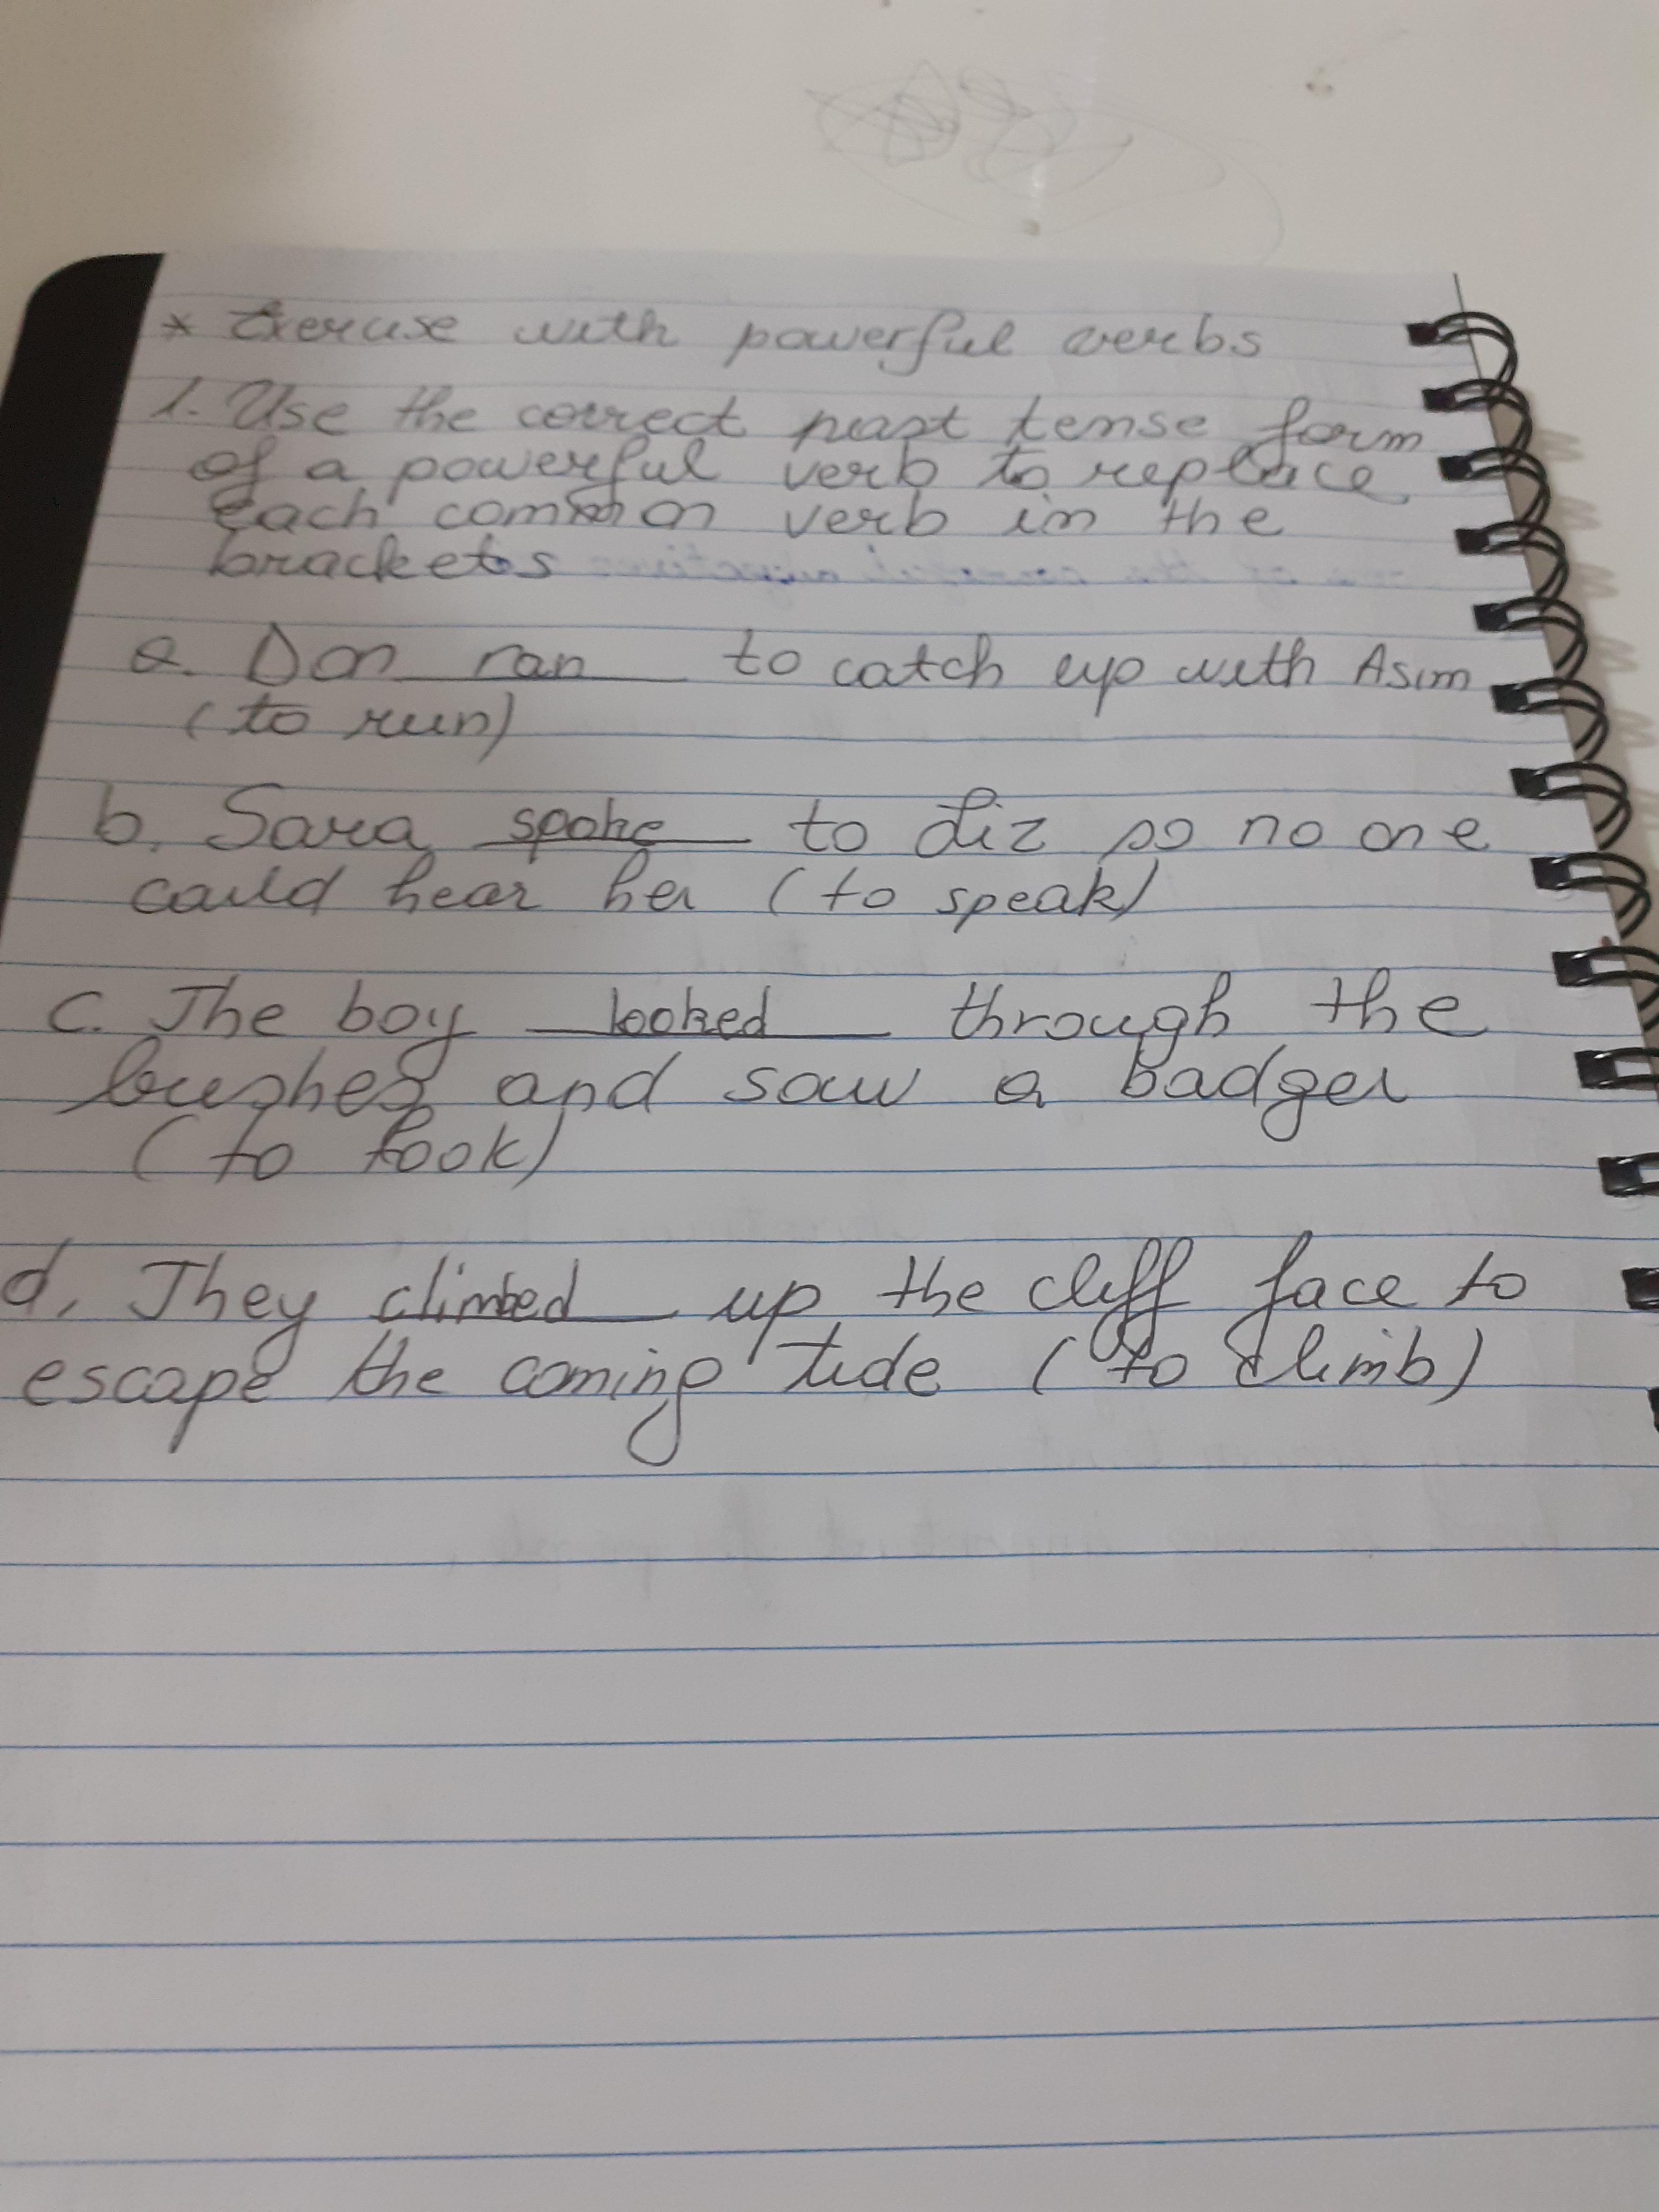 * Exercise with powerful verbs
1. Use the correct past tense form
of a powerful verb to replace
each common verb in the
brackets
a. Don ran to catch up with Asim
(to run)
b. Sara spoke to Liz so no one
could hear her (to speak)
c. The boy looked through the
bushes and saw a badger
(to look)
d. They climbed up the cliff face to
escape the coming tide (to climb)